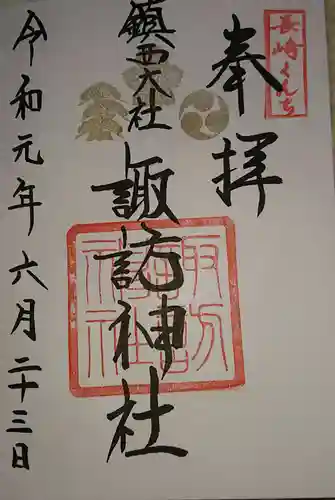 長崎くんち
奉拝
鎮西大社
諏訪神社
令和元年六月二十三日